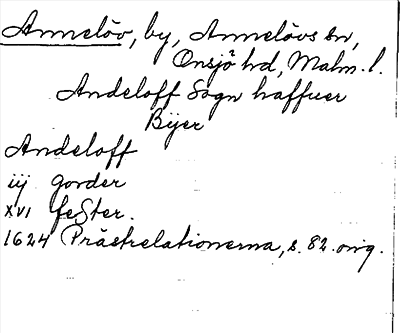 Annelöv, by, Annelövs sn,
Onsjö hd, Malm. l.
Andeloff Sogn haffuer
Byer
Andeloff
iij gorder
XVI fester.
1624 Prästrelationerna, s. 82. orig.